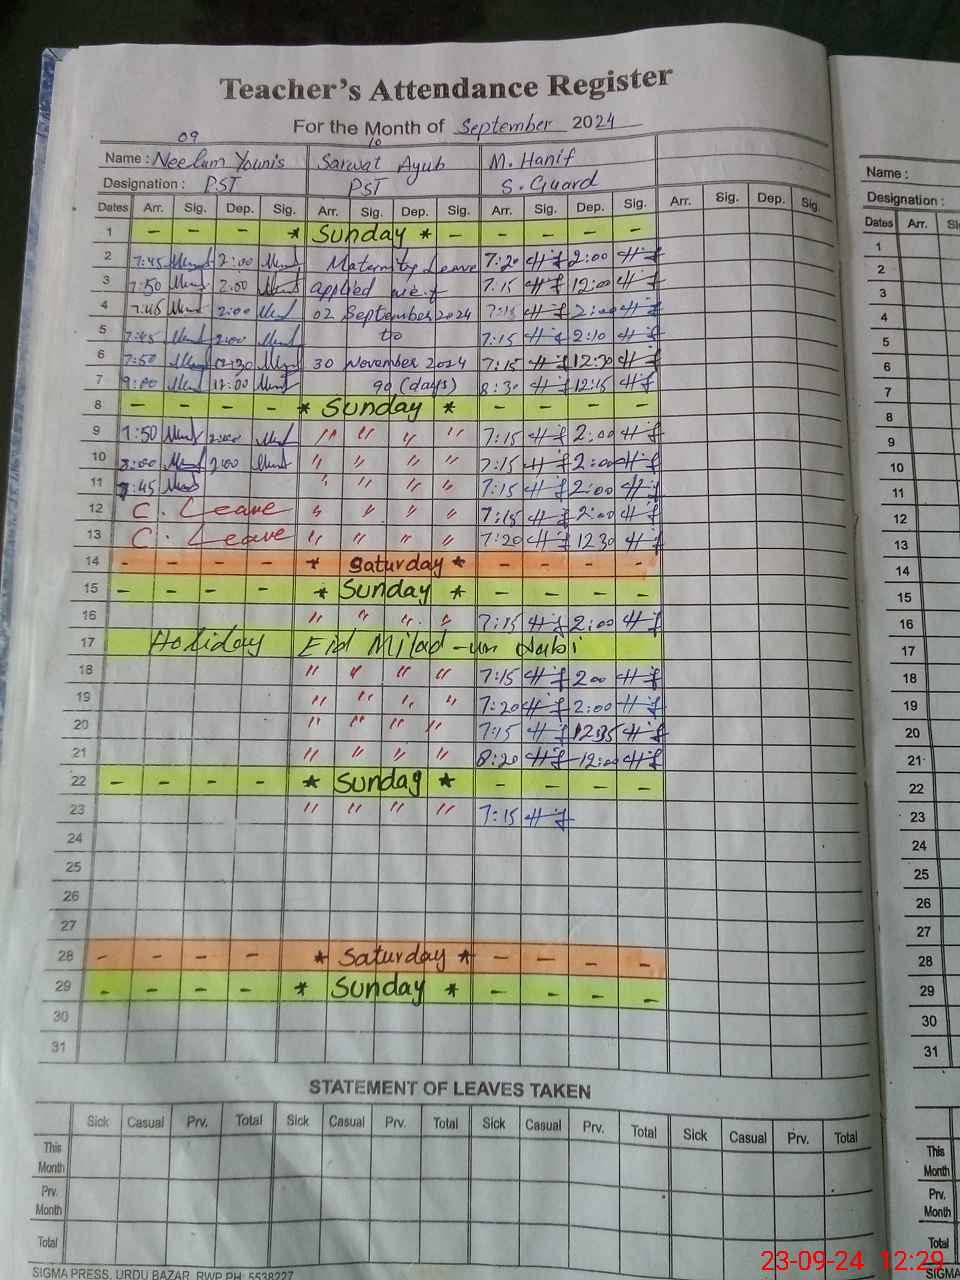 Teacher's Attendance Register
For the Month of September 2024
09 10
Name : Neelum Younis Sarwat Ayub M. Hanif
Designation : PST PST S. Guard
Dates Arr. Sig. Dep. Sig. Arr. Sig. Dep. Sig. Arr. Sig. Dep. Sig. Arr. Sig. Dep. Sig.
1 - - - * Sunday * - - - - -
2 7:45 2:00 Maternity Leave 7:20 2:00
3 7:50 2:00 applied w.e.f 7:15 12:00
4 7:45 2:00 02 September 2024 7:15 2:00
5 7:45 2:00 to 7:15 2:10
6 7:50 12:30 30 November 2024 7:15 12:30
7 9:00 12:00 90 (days) 8:30 12:15
8 - - - - * Sunday * - - - -
9 7:50 2:00 " " " " 7:15 2:00
10 8:00 2:00 " " " " 7:15 2:00
11 7:45 " " " " 7:15 2:00
12 C. Leave " " " " 7:15 2:00
13 C. Leave " " " " 7:20 1230
14 - - - - * Saturday * - - - -
15 - - - - * Sunday * - - - -
16 " " " " 7:15 2:00
17 Holiday Eid Milad-un Nabi
18 " " " " 7:15 200
19 " " " " 7:20 2:00
20 " " " " 7:15
21 " " " " 8:20 12:00
22 - - - - * Sunday * - - - -
23 " " " " 7:15
24
25
26
27
28 - - - - * Saturday * - - - -
29 - - - - * Sunday * - - - -
30
31
STATEMENT OF LEAVES TAKEN
Sick Casual Prv. Total Sick Casual Prv. Total Sick Casual Prv. Total Sick Casual Prv. Total
This Month
Prv. Month
Total
SIGMA PRESS, URDU BAZAR, RWP PH: 5538227
Name :
Designation :
Dates Arr.
1
2
3
4
5
6
7
8
9
10
11
12
13
14
15
16
17
18
19
20
21
22
23
24
25
26
27
28
29
30
31
This Month
Prv. Month
Total
23-09-24 12:29